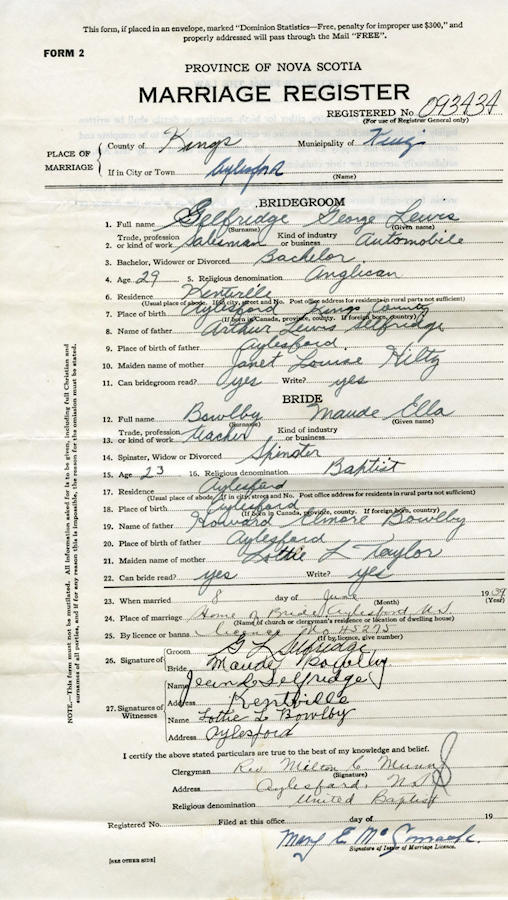 This form, if placed in an envelope, marked "Dominion Statistics—Free, penalty for improper use $300," and
properly addressed will pass through the Mail "FREE".
FORM 2
PROVINCE OF NOVA SCOTIA
MARRIAGE REGISTER
REGISTERED No 093434
(For use of Registrar General only)
PLACE OF MARRIAGE
County of Kings Municipality of Kings
If in City or Town Aylesford (Name)
BRIDEGROOM
1. Full name Selfridge George Lewis
(Surname) (Given name)
2. Trade, profession or kind of work Salesman Kind of industry or business Automobile
3. Bachelor, Widower or Divorced Bachelor
4. Age 29 5. Religious denomination Anglican
6. Residence Kentville
(Usual place of abode. If in city, street and No. Post office address for residents in rural parts not sufficient)
7. Place of birth Aylesford Kings County
(If born in Canada, province, county. If foreign born, country)
8. Name of father Arthur Lewis Selfridge
9. Place of birth of father Aylesford
10. Maiden name of mother Janet Louise Hiltz
11. Can bridegroom read? yes Write? yes
BRIDE
12. Full name Bowlby Maude Ella
(Surname) (Given name)
13. Trade, profession or kind of work teacher Kind of industry or business
14. Spinster, Widow or Divorced Spinster
15. Age 23 16. Religious denomination Baptist
17. Residence Aylesford
(Usual place of abode. If in city, street and No. Post office address for residents in rural parts not sufficient)
18. Place of birth Aylesford
(If born in Canada, province, county. If foreign born, country)
19. Name of father Howard Elmore Bowlby
20. Place of birth of father Aylesford
21. Maiden name of mother Lottie L Taylor
22. Can bride read? yes Write? yes
23. When married 8 day of June (Month) 1939 (Year)
24. Place of marriage Home of Bride, Aylesford, N.S.
(Name of church or clergyman's residence or location of dwelling house)
25. By licence or banns License No 45275
(If by licence, give number)
26. Signature of
Groom G L Selfridge
Bride Maude Bowlby
27. Signatures of Witnesses
Name Jean D Selfridge
Address Kentville
Name Lottie L Bowlby
Address Aylesford
I certify the above stated particulars are true to the best of my knowledge and belief.
Clergyman Rev Milton C. Munro
(Signature)
Address Aylesford, N.S.
Religious denomination United Baptist
Registered No. Filed at this office day of 19
Mary E
Signature of Issuer of Marriage Licence.
[SEE OTHER SIDE]
NOTE.—This form must not be mutilated. All information asked for is to be given, including full Christian and
surnames of all parties, and if for any reason this is impossible, the reason for the omission must be stated.